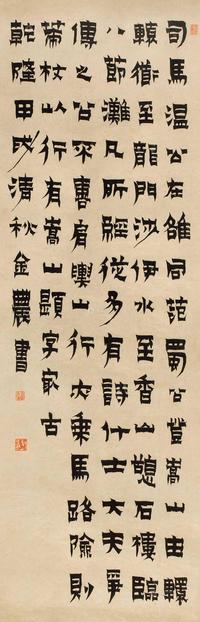 司馬溫公在雒同范蜀公登嵩山由轘
轅衜至龍門涉伊水至香山憩石樓臨
八節灘凡所經從多有詩什士大夫爭
傳之公不喜肩輿山行亦乘馬路險則
策杖以行有嵩山題字家古
乾隆甲戌清秋金農書